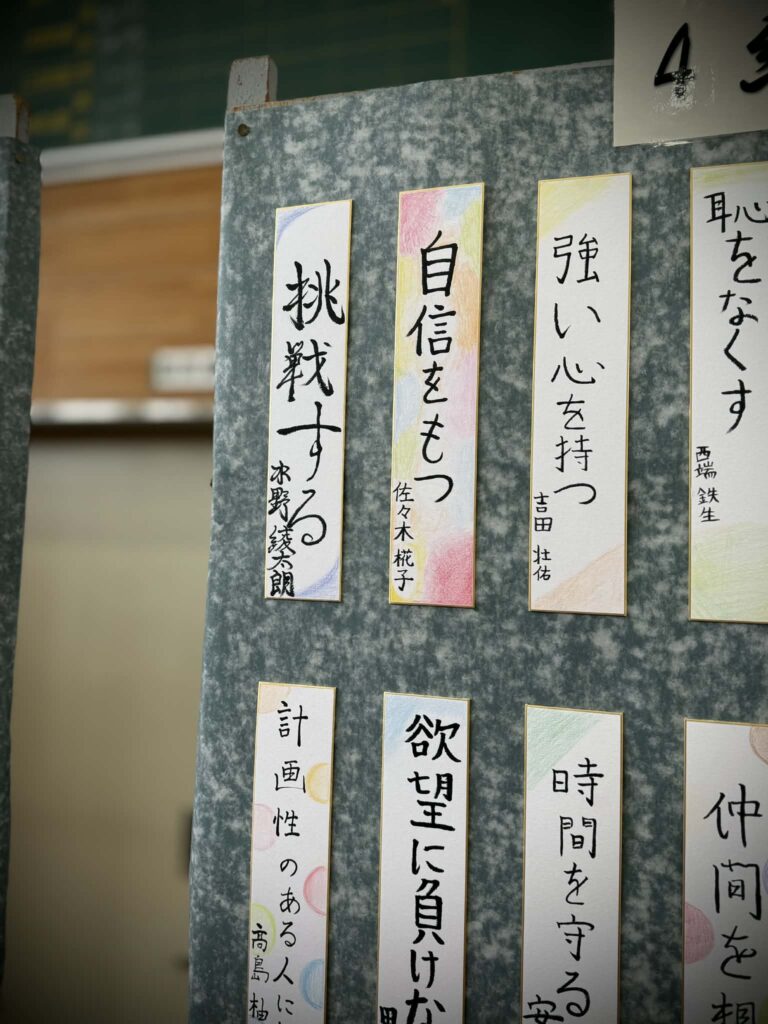 4
恥をなくす
西端 鉄生
強い心を持つ
吉田 壮佑
自信をもつ
佐々木 椛子
挑戦する
水野 綾太朗
仲間を
時間を守る
安
欲望に負けな
計画性のある人に
高島 柚